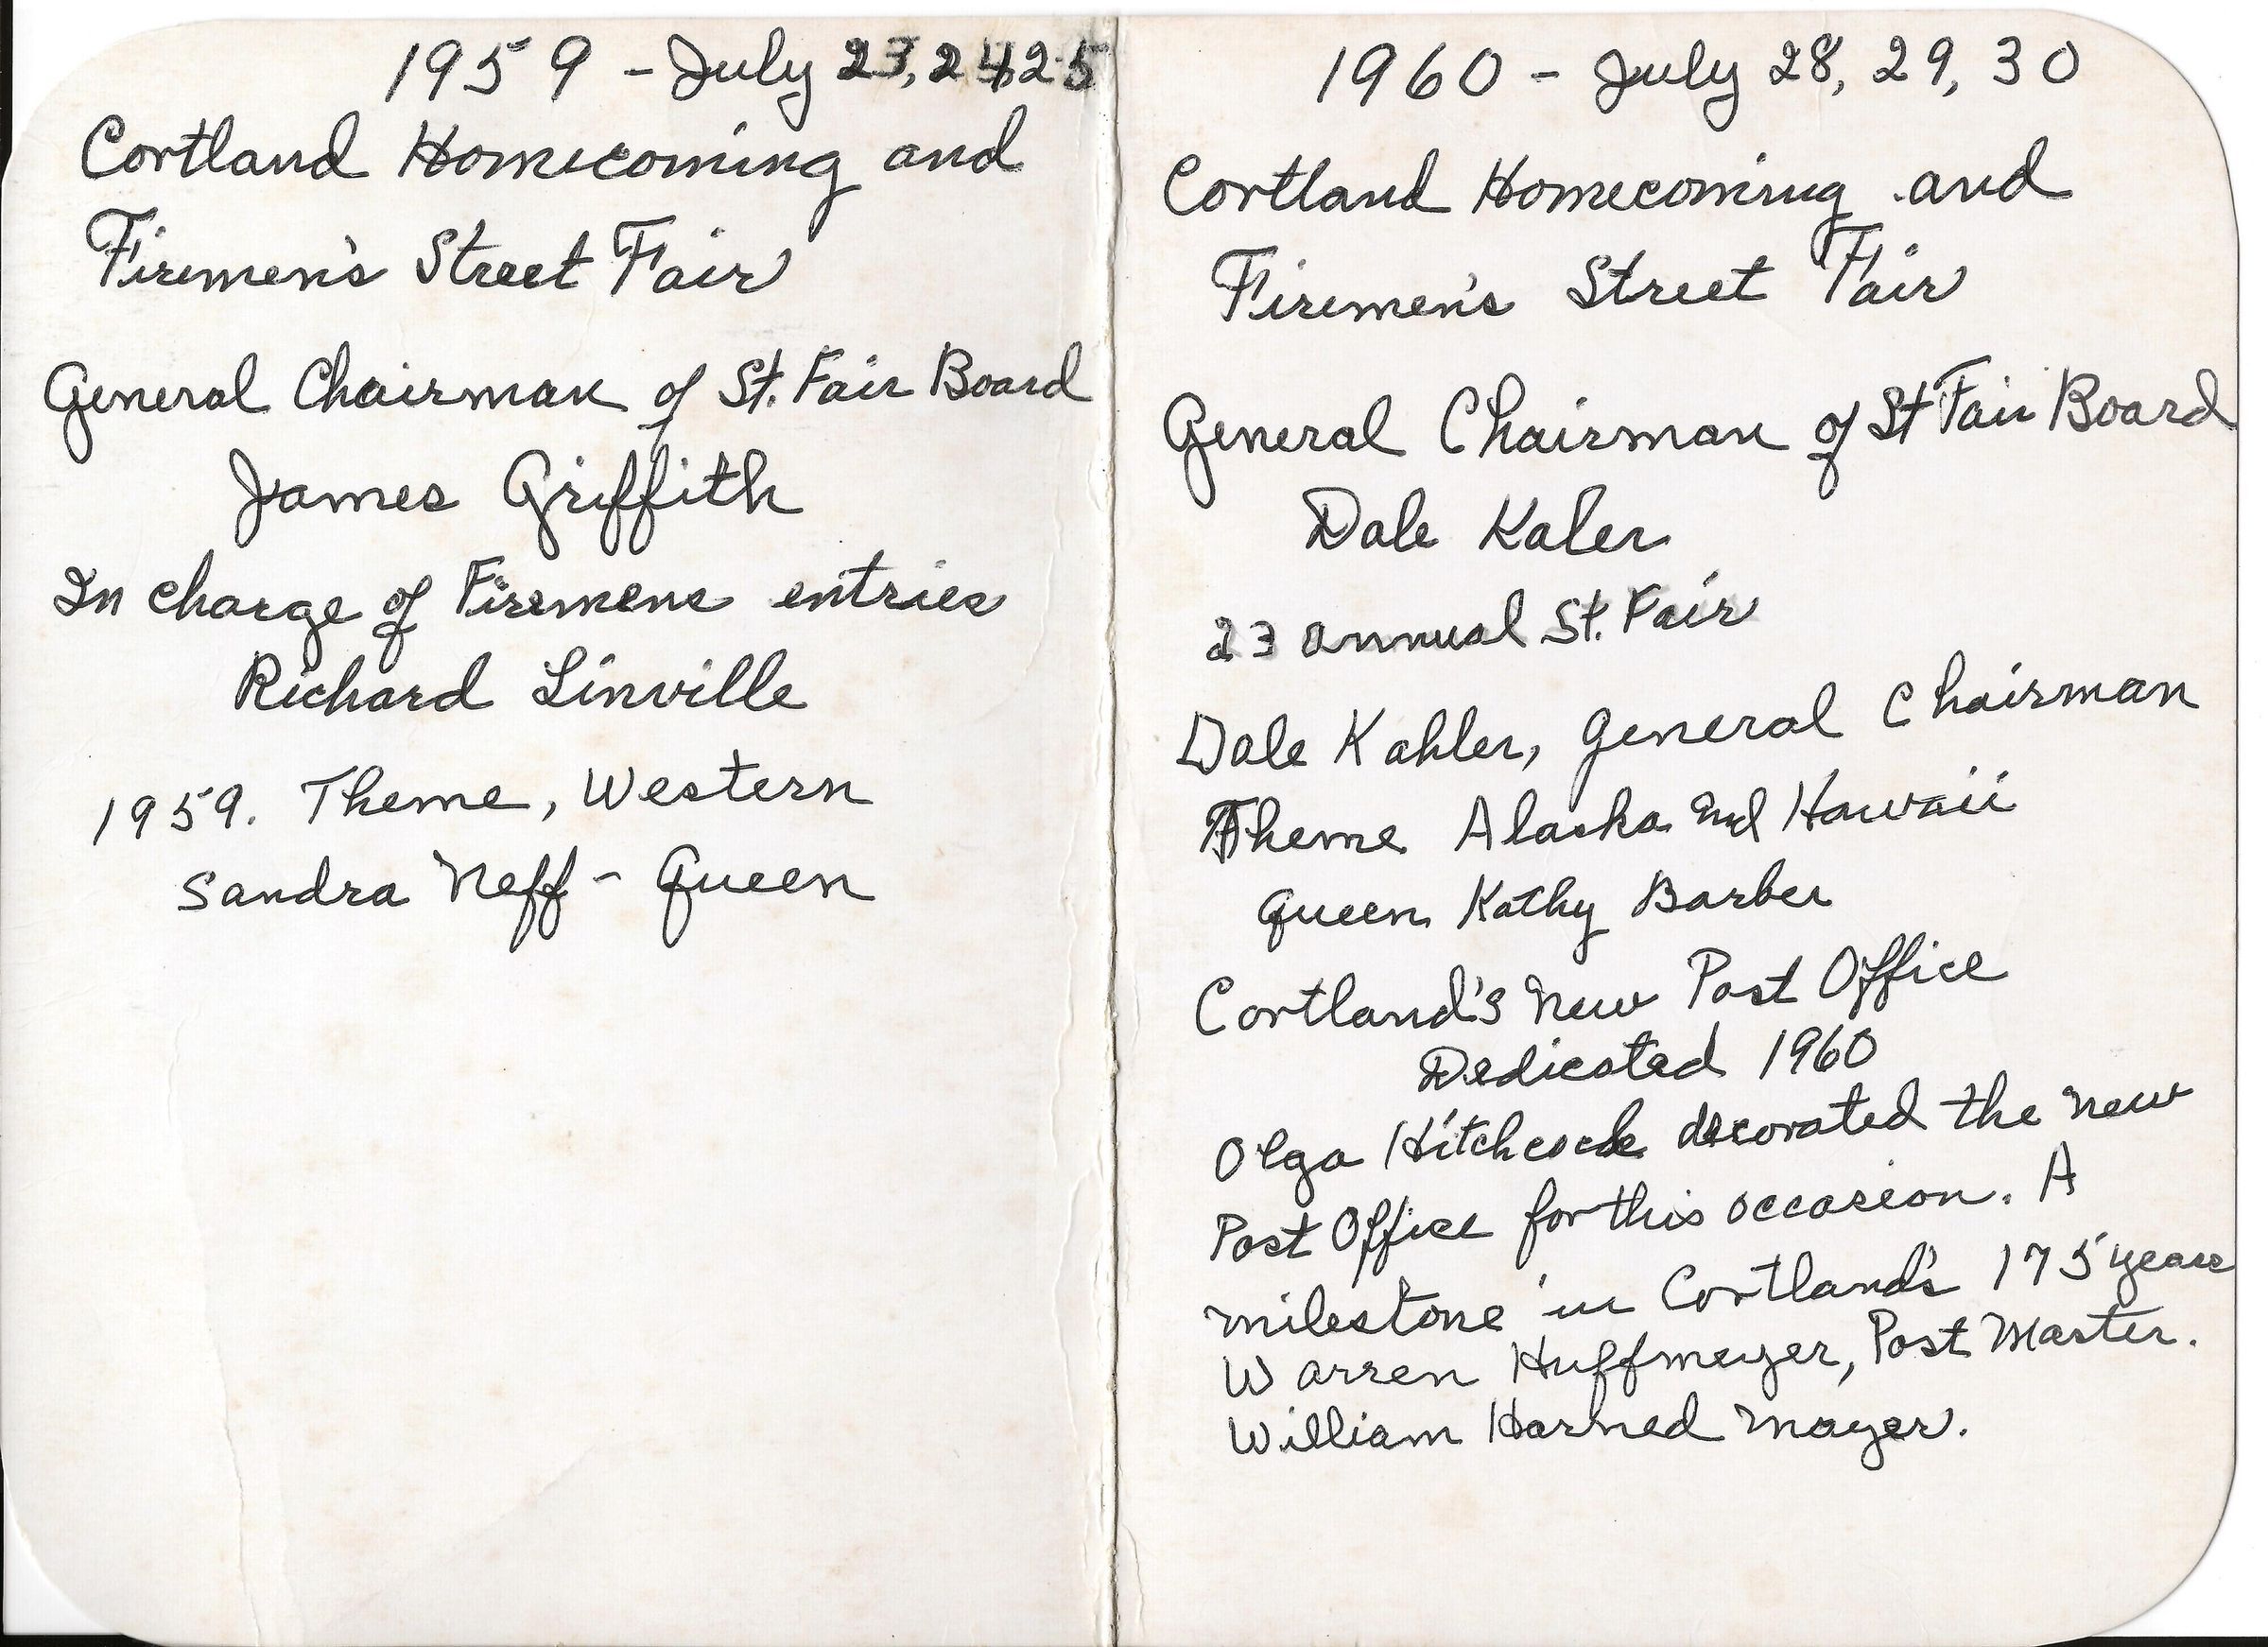 1959 - July 23, 24 25
Cortland Homecoming and
Firemen's Street Fair
General Chairman of St. Fair Board
James Griffith
In charge of Firemens entries
Richard Linville
1959. Theme, Western
Sandra Neff - Queen
1960 - July 28, 29, 30
Cortland Homecoming and
Firemen's Street Fair
General Chairman of St Fair Board
Dale Kaler
23 annual St. Fair
Dale Kahler, General Chairman
Theme Alaska and Hawaii
Queen Kathy Barber
Cortland's New Post Office
Dedicated 1960
Olga Hitchcock decorated the new
Post Office for this occasion. A
milestone in Cortland's 175 years
Warren Huffmeyer, Post Master.
William Harned Mayer.